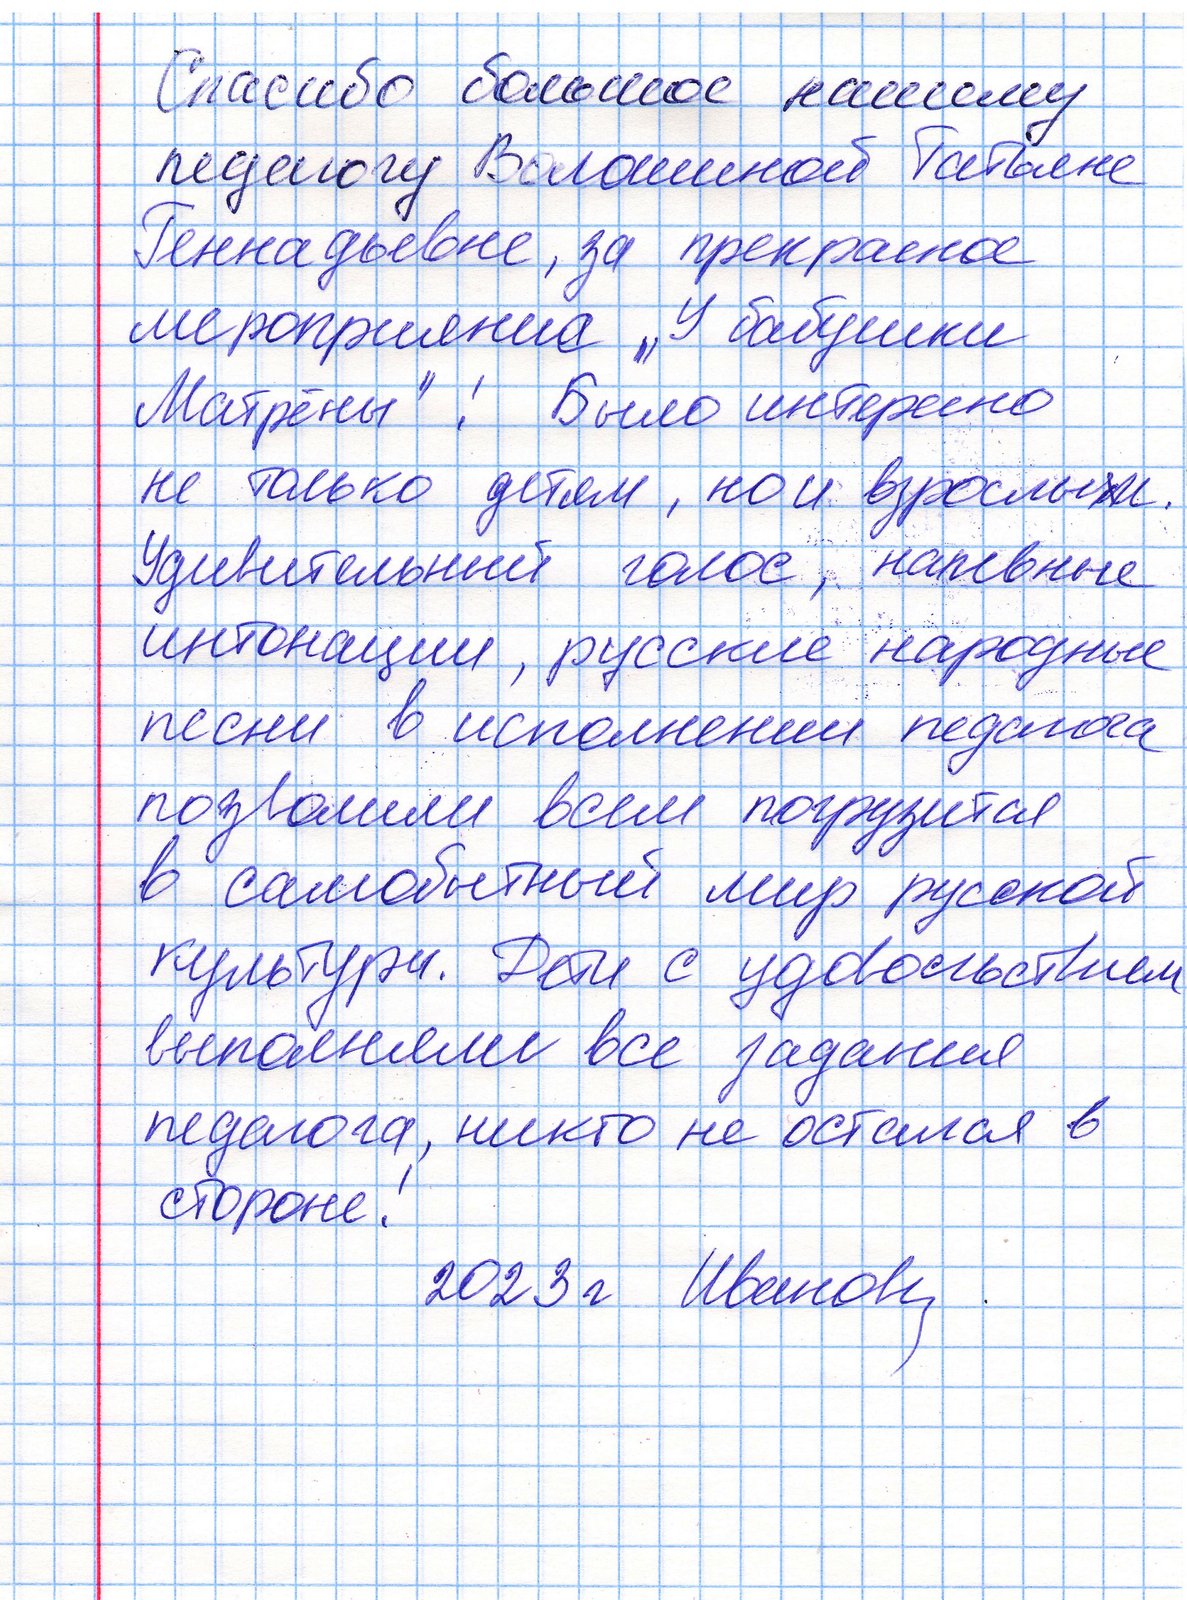 Спасибо большое нашему
педагогу Волошиной Татьяне
Геннадьевне, за прекрасное
мероприятие „У бабушки
Матрёны"! Было интересно
не только детям, но и взрослым.
Удивительный голос, напевные
интонации, русские народные
песни в исполнении педагога
позволили всем погрузится
в самобытный мир русской
культуры. Дети с удовольствием
выполняли все задания
педагога, никто не остался в
стороне!
2023г Иванов